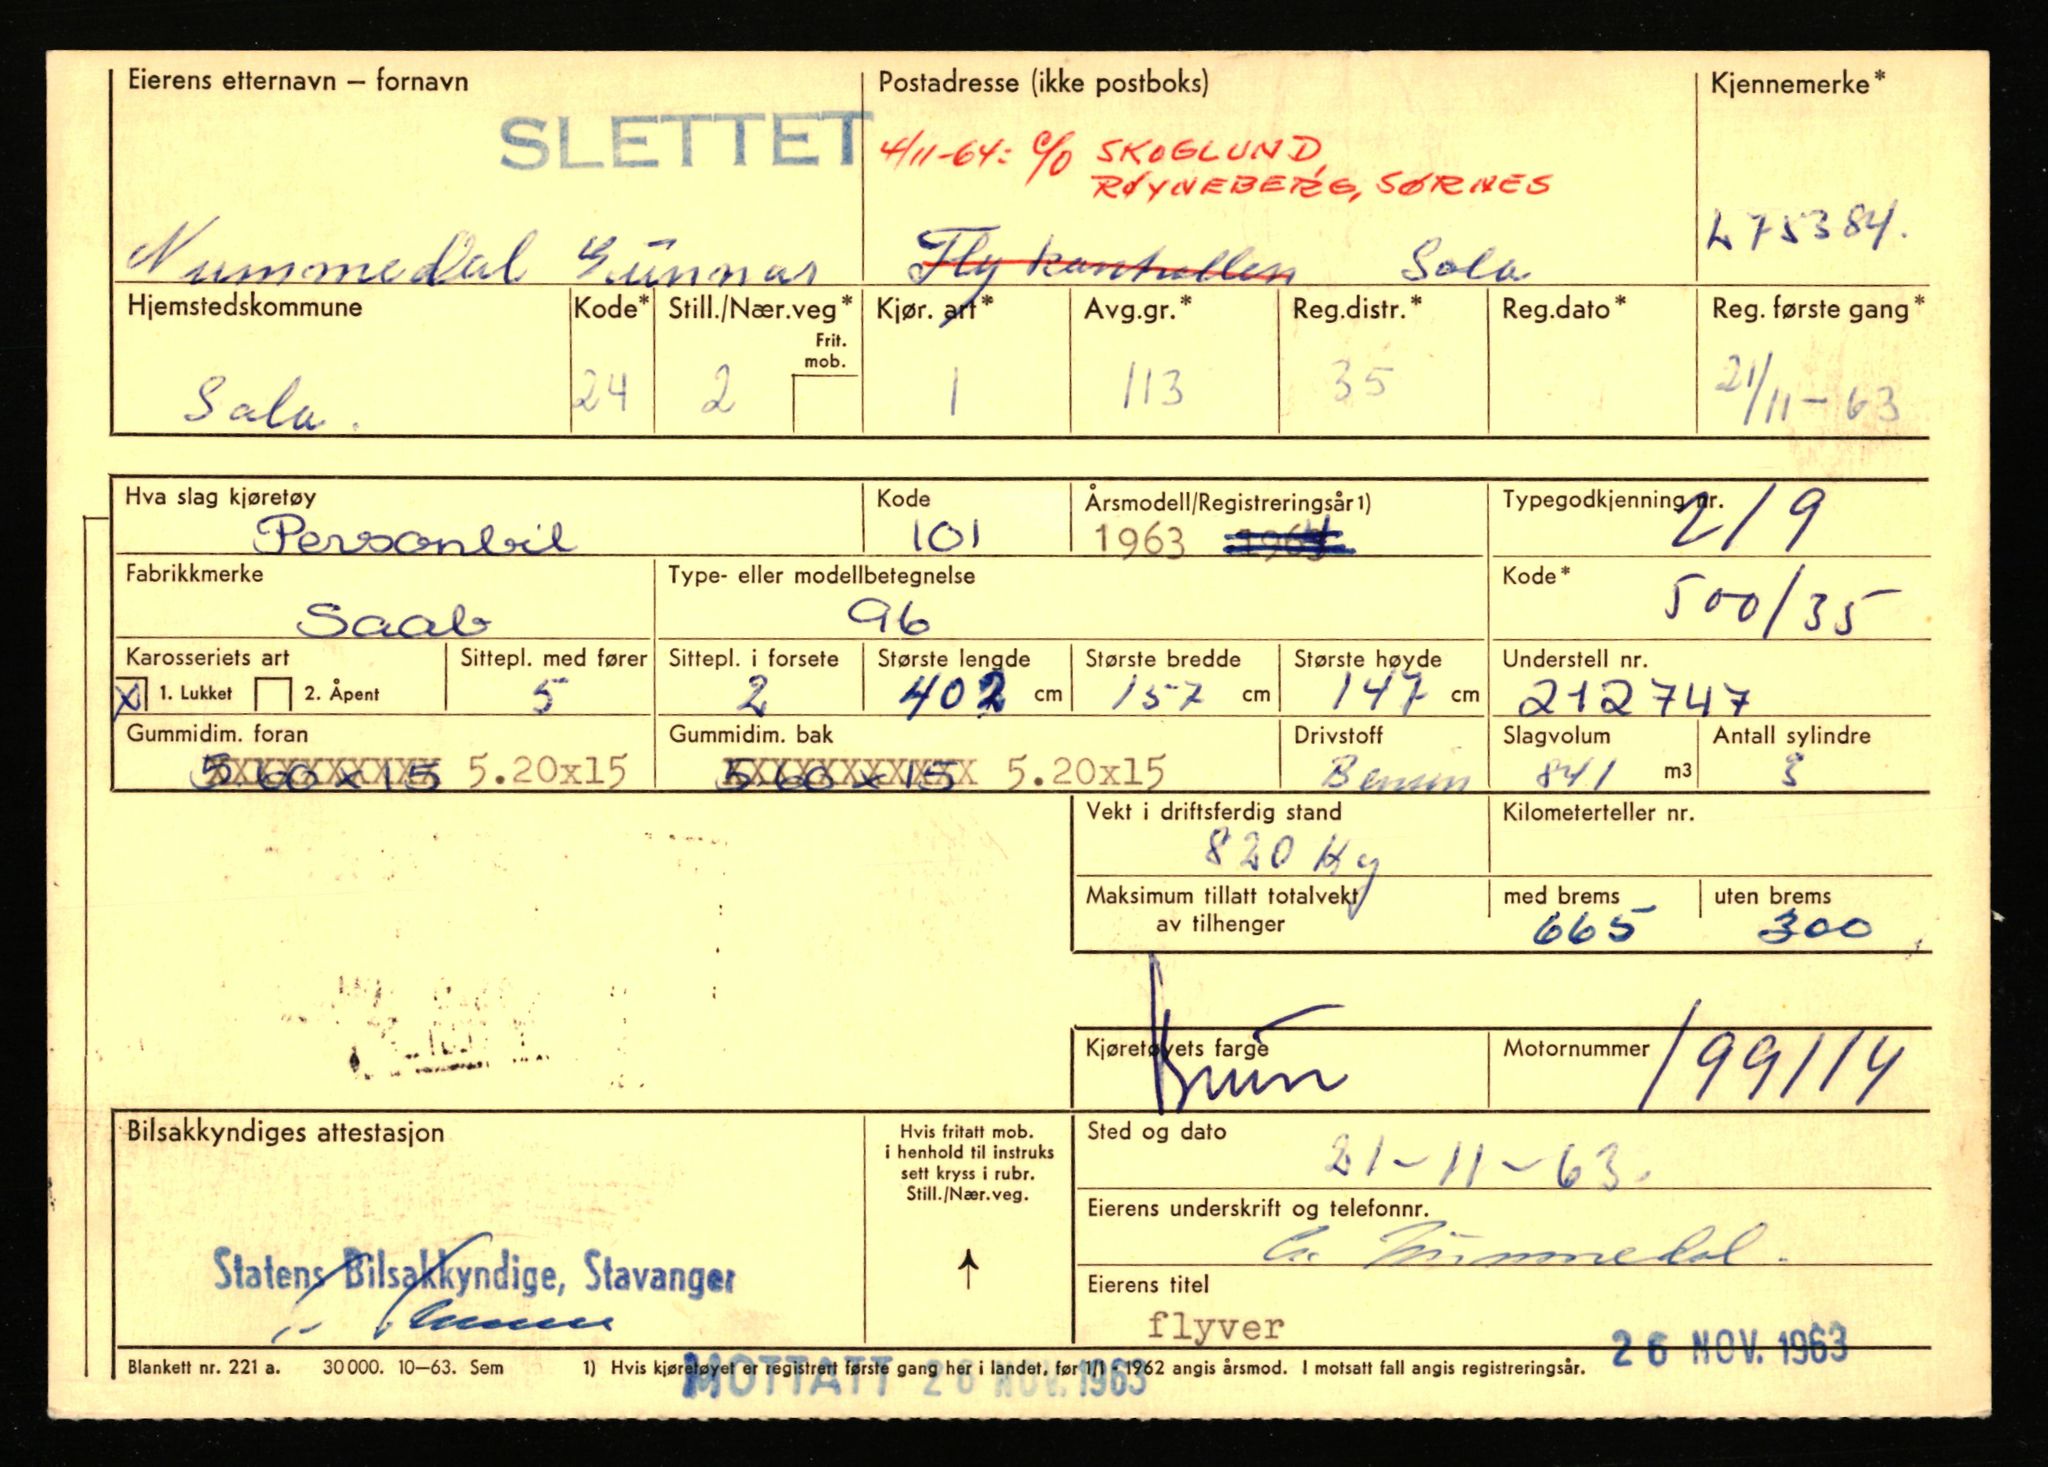 Eierens etternavn – fornavn
Postadresse (ikke postboks)
Kjennemerke*
SLETTET
4/11-64: c/o SKOGLUND,
RØYNEBERG, SØRNES
L 75384.
Nummedal Gunnar
Flykontrollen Sola
Hjemstedskommune
Kode*
Still./Nær.veg*
Frit.
mob.
Kjør. art*
Avg.gr.*
Reg.distr.*
Reg.dato*
Reg. første gang*
Sola.
24
2
1
113
35
21/11-63
Hva slag kjøretøy
Kode
Årsmodell/Registreringsår1)
Typegodkjenning nr.
Personbil
101
1963 1964
219
Fabrikkmerke
Type- eller modellbetegnelse
Kode*
Saab
96
500/35
Karosseriets art
Sittepl. med fører
Sittepl. i forsete
Største lengde
Største bredde
Største høyde
Understell nr.
X 1. Lukket 2. Åpent
5
2
402 cm
157 cm
147 cm
212747
Gummidim. foran
Gummidim. bak
Drivstoff
Slagvolum
Antall sylindre
5 60 x 15 5.20x15
5 60 x 15 5.20x15
Bensin
841 m3
3
Vekt i driftsferdig stand
Kilometerteller nr.
820 Kg
Maksimum tillatt totalvekt
av tilhenger
med brems
uten brems
665
300
Kjøretøyets farge
Motornummer
brun
199114
Bilsakkyndiges attestasjon
Hvis fritatt mob.
i henhold til instruks
sett kryss i rubr.
Still./Nær.veg.
Sted og dato
21-11-63.
Eierens underskrift og telefonnr.
G. Nummedal.
Statens Bilsakkyndige, Stavanger
Eierens titel
flyver
26 NOV. 1963
Blankett nr. 221 a. 30 000. 10–63. Sem
1) Hvis kjøretøyet er registrert første gang her i landet, før 1/1 - 1962 angis årsmod. I motsatt fall angis registreringsår.
MOTTATT 26 NOV. 1963